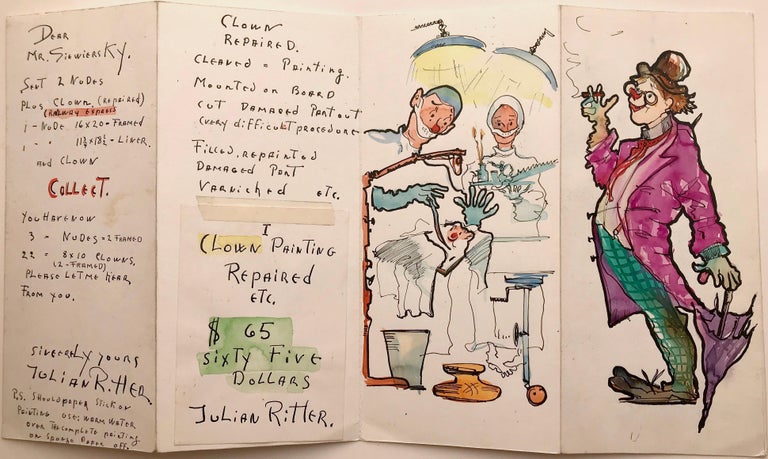 Dear
Mr. Siewiersky.
Sent 2 Nudes
Plus Clown (Repaired)
(Railway Express
1 - Nude 16x20 - Framed
1 - " 11½ x 18½ - Liner.
and Clown
Collect.
You have now
3 - Nudes = 2 Framed
22 = 8x10 Clowns.
(2 - Framed)
Please let me hear
From you.
Sincerely yours
Julian Ritter.
P.S. Should paper stick on
Painting use: warm water
over the complete painting
on sponge Paper off.
Clown
Repaired.
Cleaned = Painting.
Mounted on Board
Cut Damaged Part out
(very difficult procedure
Filled, reprinted
Damaged Part
Varniched etc.
I
Clown Painting
Repaired
etc.
$ 65
Sixty Five
Dollars
Julian Ritter.